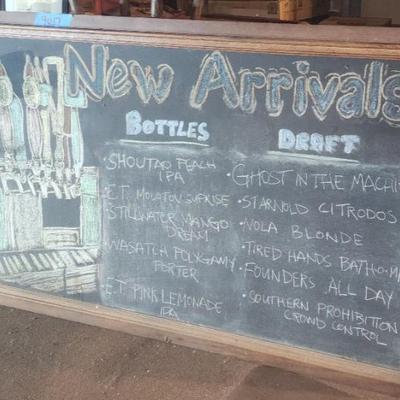 New Arrivals
BOTTLES
• SHOUTAO PEACH
IPA
• E.T. MOLOTOV SURPRISE
• STILLWATER MANGO
DREAM
• WASATCH POLYGAMY
PORTER
• E.T. PINK LEMONADE
IPA
DRAFT
• GHOST IN THE MACHI
• STARNOLD CITRODOS
• NOLA BLONDE
• TIRED HANDS BATHO-M
• FOUNDERS ALL DAY
• SOUTHERN PROHIBITION
CROWD CONTROL